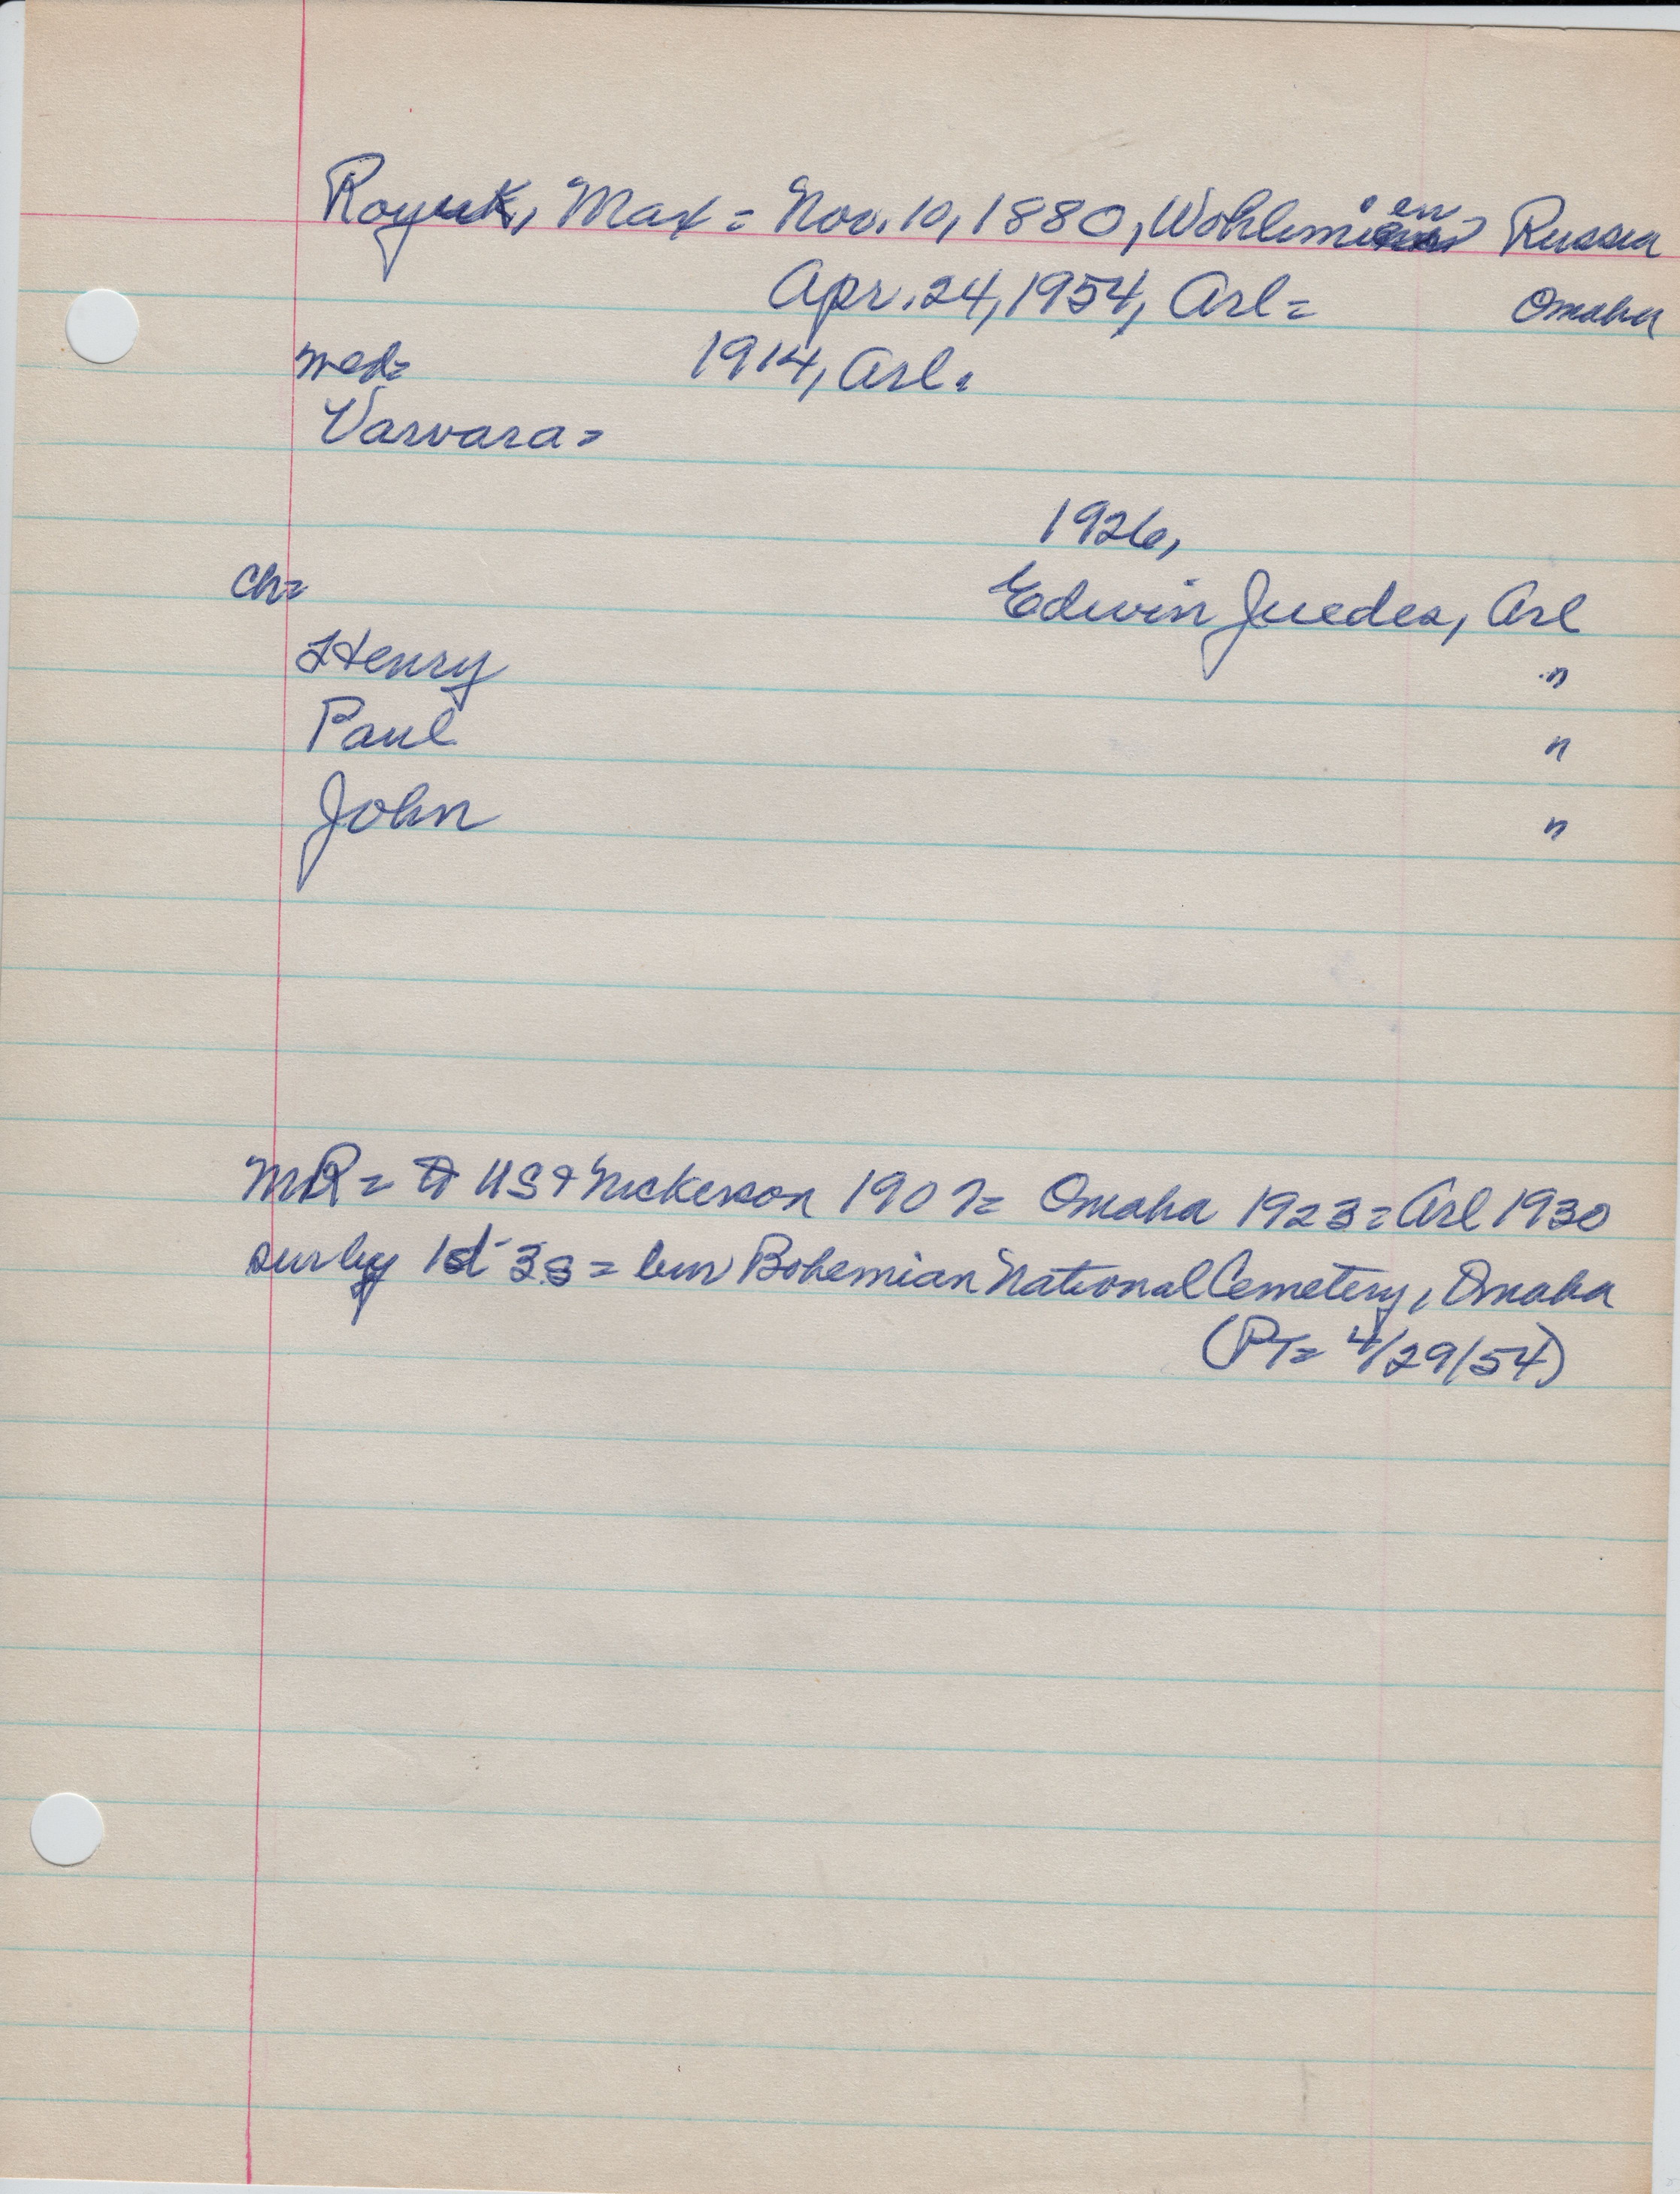 Royuk, Max = Nov. 10, 1880, Wohlimien = Russia
Apr. 24, 1954, Arl = Omaha
med= 1914, Arl.
Varvara =
1926,
ch= Edwin Juedes, Arl
Henry "
Paul "
John "
MR = to US & Nickerson 1907 = Omaha 1923 = Arl 1930
sur by 1d 3s = bur Bohemian National Cemetery, Omaha
(PT= 4/29/54)